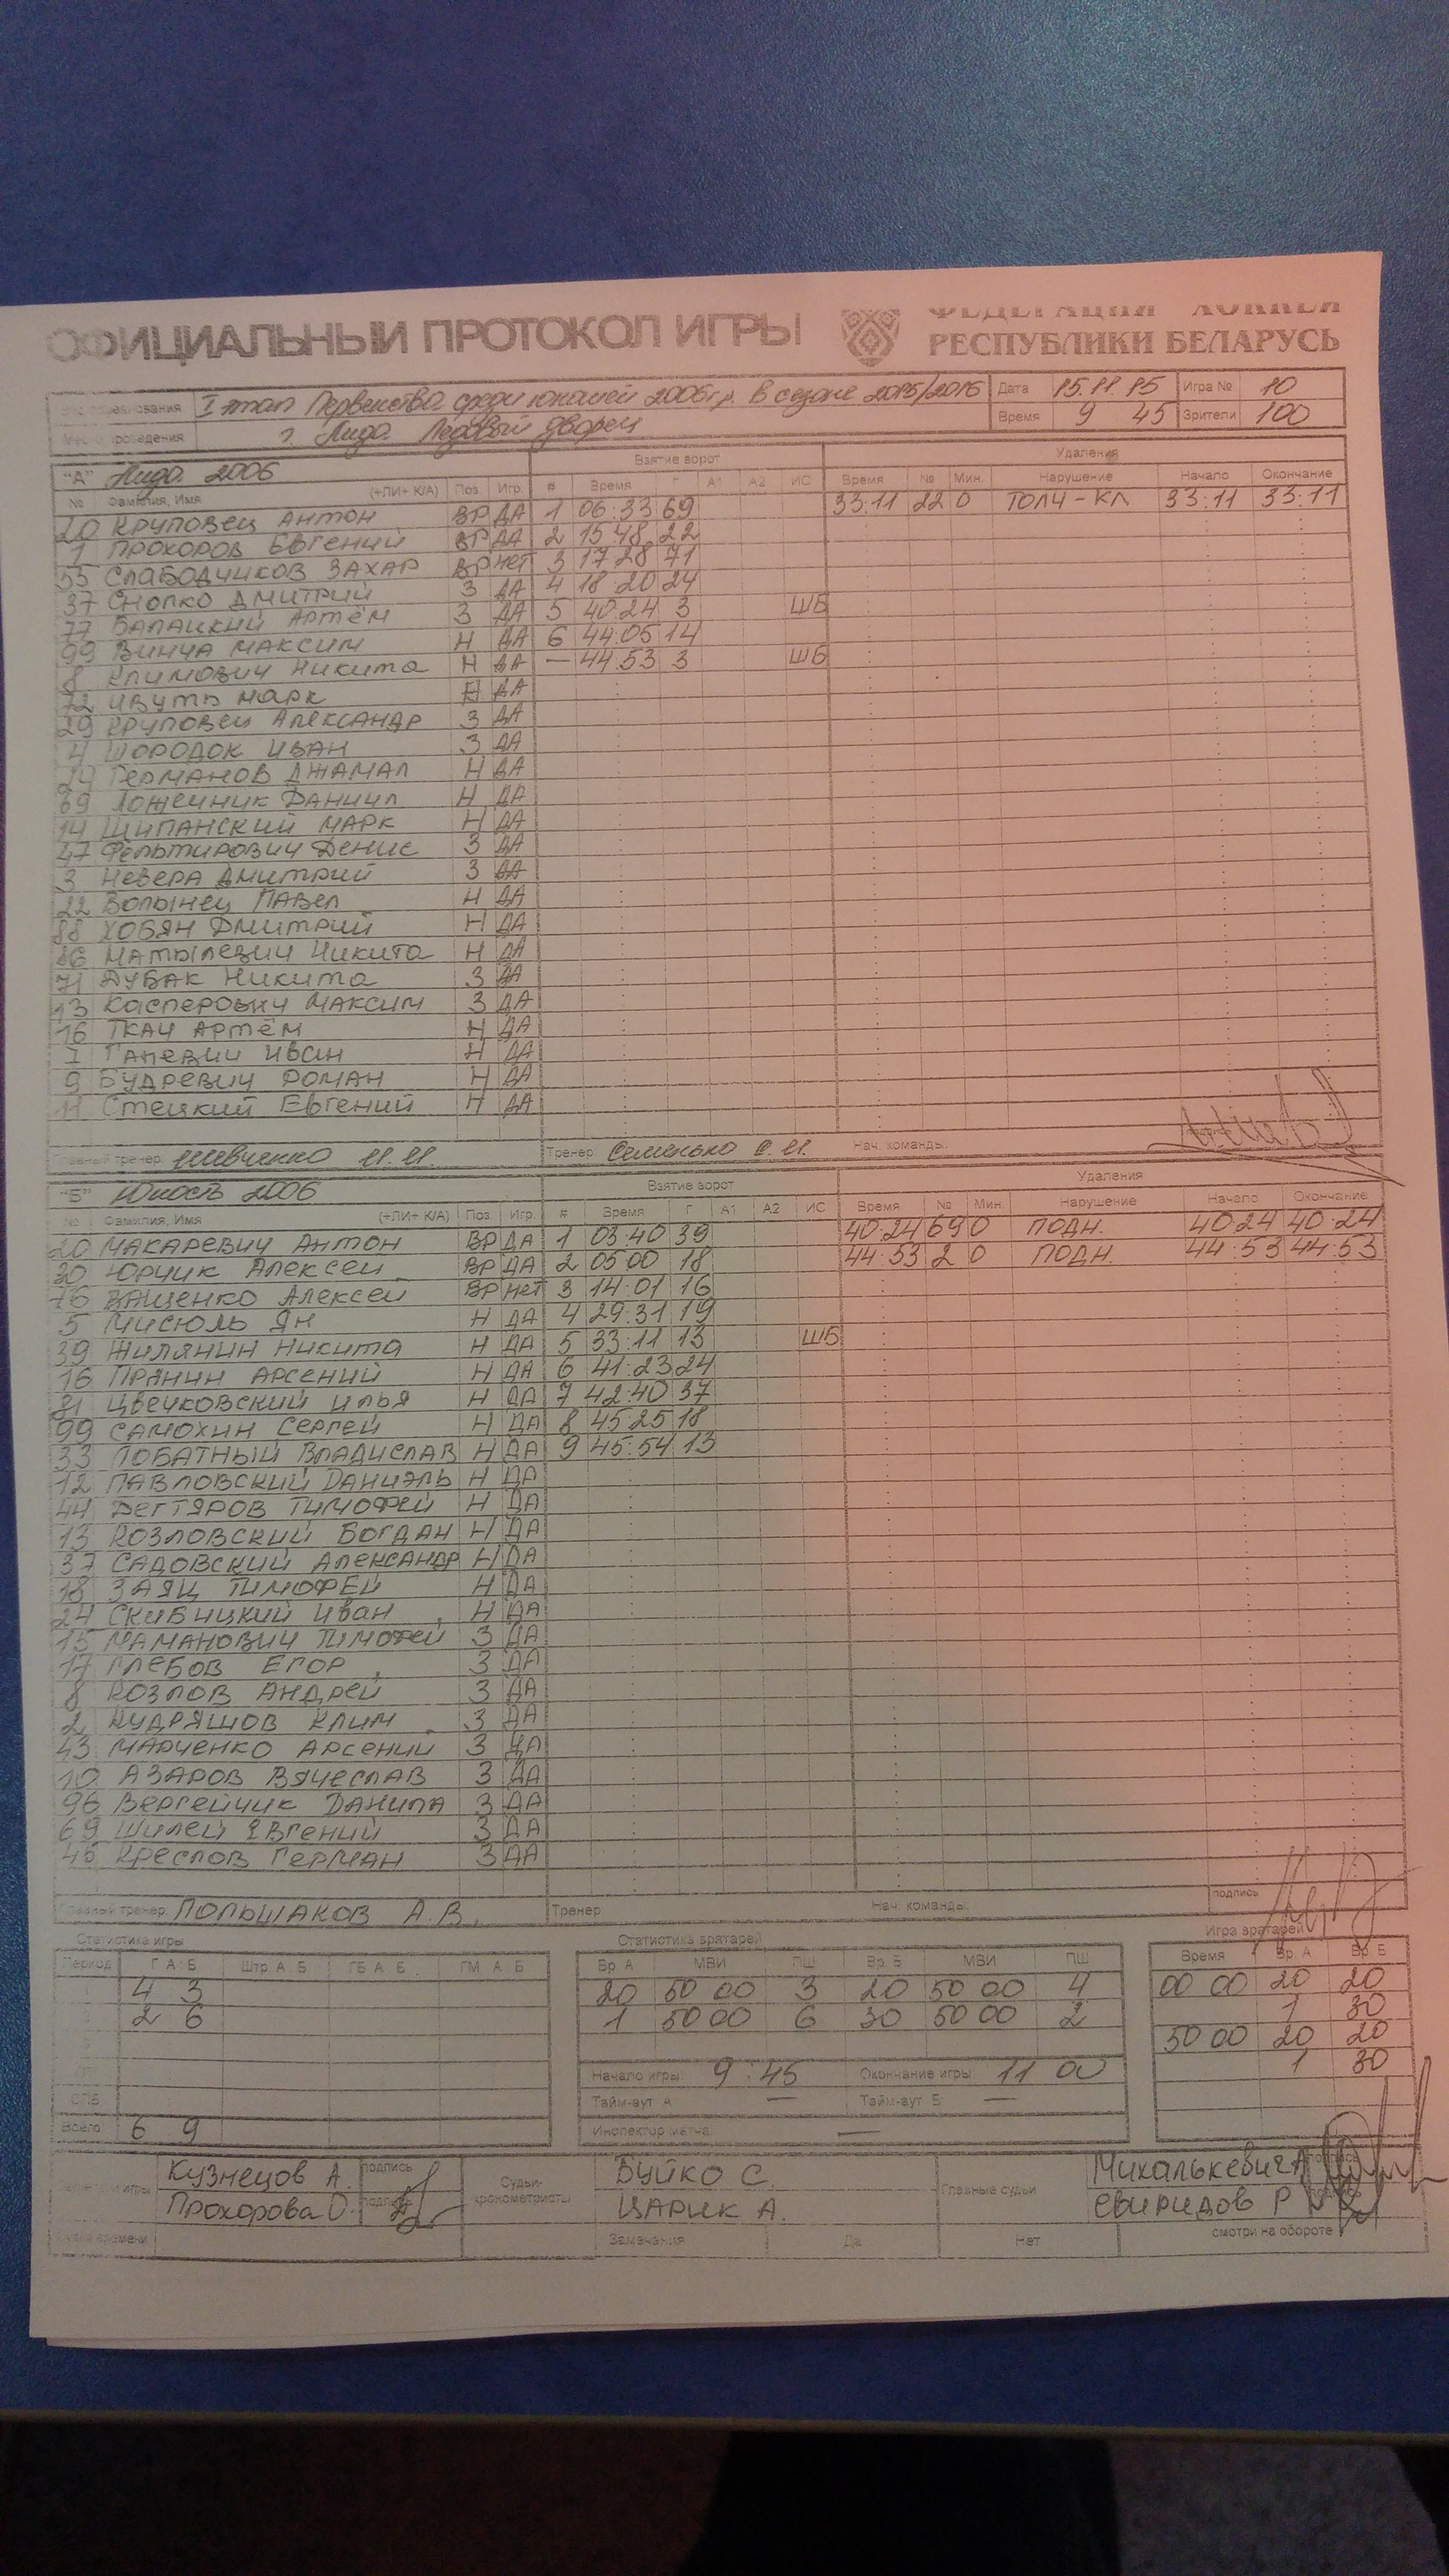 ОФИЦИАЛЬНЫЙ ПРОТОКОЛ ИГРЫ
ФЕДЕРАЦИЯ ХОККЕЯ
РЕСПУБЛИКИ БЕЛАРУСЬ
I этап Первенства среди юношей 2006 г.р. в сезоне 2015/2016 Дата 15.11.15 Игра № 10
г. Лида Ледовый дворец Время 9 45 Зрители 100
"А" Лида 2006 Взятие ворот Удаления
№ Фамилия, Имя (+ЛИ+ К/А) Поз. Игр. # Время Г А1 А2 ИС Время № Мин. Нарушение Начало Окончание
20 Круповец Антон ВР ДА 1 06:33 69 33:11 22 0 ТОЛЧ-КЛ 33:11 33:11
1 Прохоров Евгений ВР ДА 2 15 48 22
55 Слабодчиков Захар ВР нет 3 17 28 71
37 Снопко Дмитрий З ДА 4 18 20 24
77 Балацкий Артём З ДА 5 40:24 3 ШБ
99 Винча Максим Н ДА 6 44:05 14
8 Климович Никита Н ДА — 44:53 3 ШБ
72 Ивуть Марк Н ДА
29 Круповец Александр З ДА
4 Шородок Иван З ДА
24 Германов Джамал Н ДА
69 Ложечник Даниил Н ДА
14 Щипанский Марк Н ДА
47 Фельтирович Денис З ДА
3 Невера Дмитрий З ДА
22 Волынец Павел Н ДА
88 Хобян Дмитрий Н ДА
86 Матылевич Никита Н ДА
71 Дубак Никита З ДА
13 Касперович Максим З ДА
16 Ткач Артём Н ДА
7 Ганевич Иван Н ДА
9 Будревич Роман Н ДА
11 Стецкий Евгений Н ДА
Главный тренер: Шевченко И.И. Тренер: Семенько С.И. Нач. команды:
"Б" Юность 2006 Взятие ворот Удаления
№ Фамилия, Имя (+ЛИ+ К/А) Поз. Игр. # Время Г А1 А2 ИС Время № Мин. Нарушение Начало Окончание
20 Макаревич Антон ВР ДА 1 03:40 39 40:24 69 0 ПОДН. 40:24 40:24
30 Юрчик Алексей ВР ДА 2 05 00 18 44:53 2 0 ПОДН. 44:53 44:53
76 Ващенко Алексей ВР нет 3 14:01 16
5 Мисюль Ян Н ДА 4 29:31 19
39 Жилянин Никита Н ДА 5 33:11 13 ШБ
16 Прянин Арсений Н ДА 6 41:23 24
31 Цвечковский Илья Н ДА 7 42:40 37
99 Самохин Сергей Н ДА 8 45 25 18
33 Лобатный Владислав Н ДА 9 45:54 13
12 Павловский Даниэль Н ДА
44 Дегтяров Тимофей Н ДА
13 Козловский Богдан Н ДА
37 Садовский Александр Н ДА
18 Заяц Тимофей Н ДА
24 Скибицкий Иван Н ДА
15 Маманович Тимофей З ДА
17 Глебов Егор З ДА
8 Козлов Андрей З ДА
2 Кудряшов Клим З ДА
43 Марченко Арсений З ДА
10 Азаров Вячеслав З ДА
96 Вергейчик Данила З ДА
69 Шилей Евгений З ДА
45 Креслов Герман З ДА
Главный тренер: Польшаков А.В. Тренер Нач. команды: подпись
Статистика игры Статистика вратарей Игра вратарей
Период Г А Б Штр. А Б ГБ А Б ГМ А Б Вр. А МВИ ПШ Вр. Б МВИ ПШ Время Вр. А Вр. Б
4 3 20 50 00 3 20 50 00 4 00 00 20 20
2 6 1 50 00 6 30 50 00 2 1 30
50 00 20 20
Начало игры: 9:45 Окончание игры 11 00 1 30
Тайм-аут А — Тайм-аут Б —
Всего 6 9 Инспектор матча —
Кузнецов А. подпись Судьи-хронометристы Буйко С. Главные судьи Михалькевич А
Прохорова О. подпись Царик А. Свиридов Р
Замечания Да Нет смотри на обороте